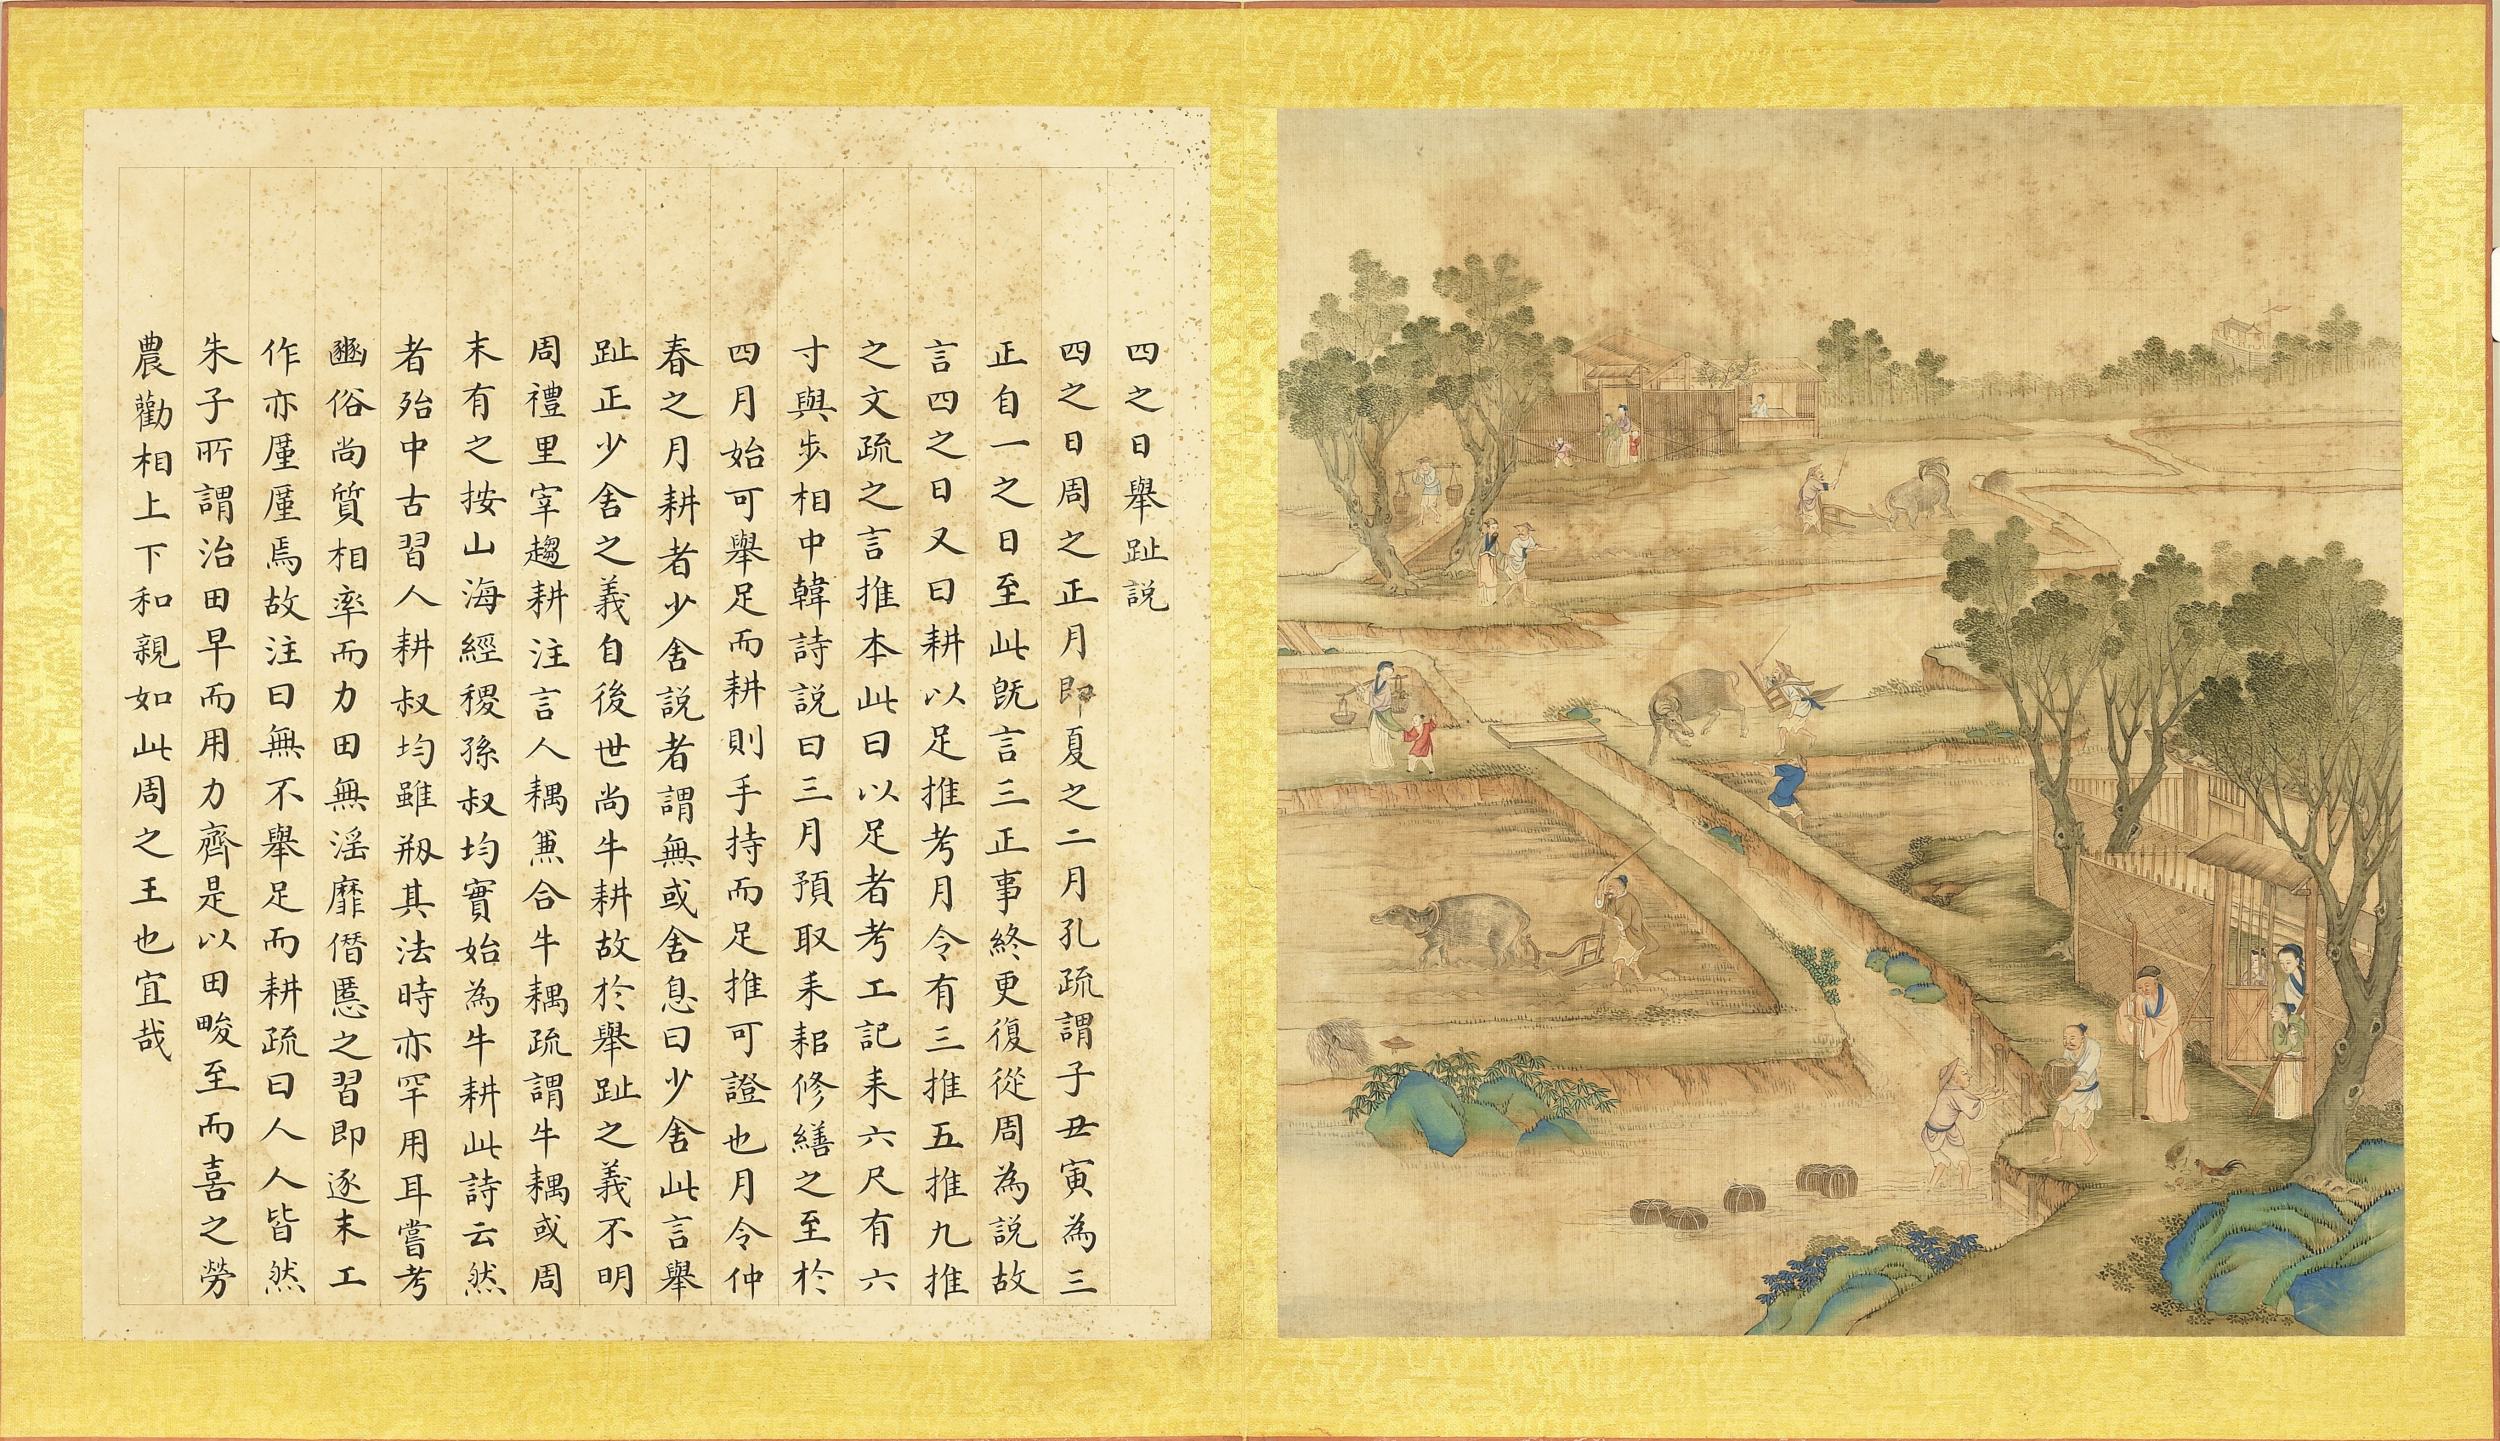 四之日舉趾説
四之日周之正月即夏之二月孔疏謂子丑寅為三
正自一之日至此既言三正事終更復從周為説故
言四之日又曰耕以足推考月令有三推五推九推
之文疏之言推本此曰以足者考工記耒六尺有六
寸與步相中韓詩説曰三月預取耒耜修繕之至於
四月始可舉足而耕則手持而足推可證也月令仲
春之月耕者少舍説者謂無或舍息曰少舍此言舉
趾正少舍之義自後世尚牛耕故於舉趾之義不明
周禮里宰趨耕注言人耦兼合牛耦疏謂牛耦或周
末有之按山海經稷孫叔均實始為牛耕此詩云然
者殆中古習人耕叔均雖剏其法時亦罕用耳嘗考
豳俗尚質相率而力田無滛靡僭慝之習即逐末工
作亦厪厪焉故注曰無不舉足而耕疏曰人人皆然
朱子所謂治田早而用力齊是以田畯至而喜之勞
農勸相上下和親如此周之王也宜哉